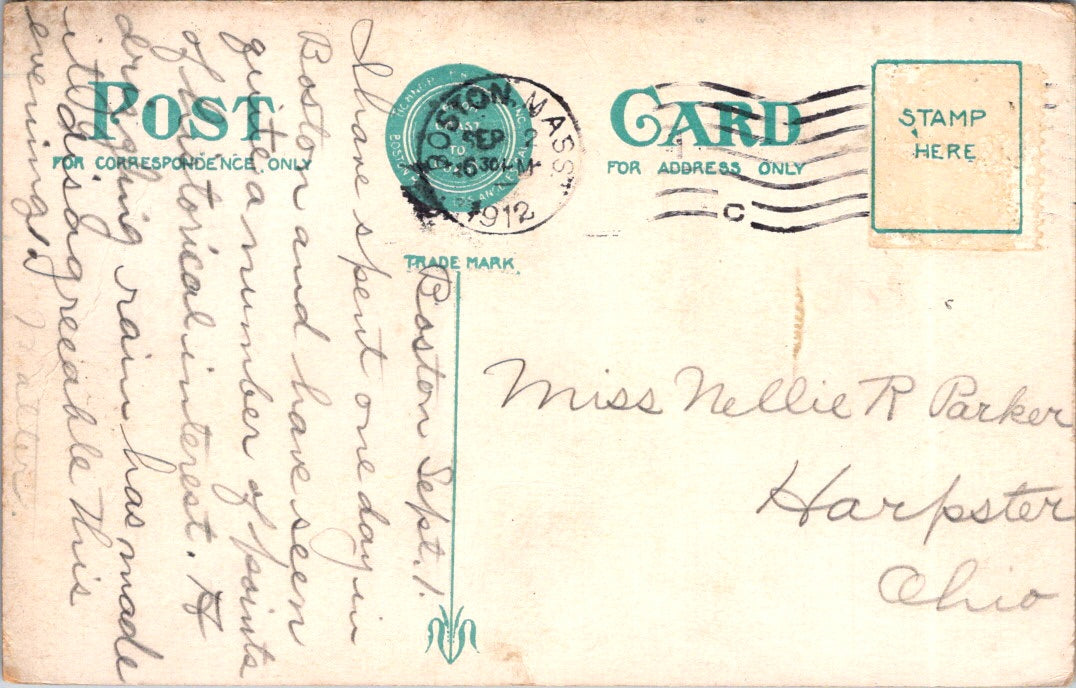 POST CARD
FOR CORRESPONDENCE ONLY
FOR ADDRESS ONLY
STAMP
HERE
BOSTON, MASS.
SEP 2
630
1912
C
TRADE MARK
Boston Sept. 1.
I have spent one day in
Boston and have seen
quite a number of points
of historical interest. A
drizzling rain has made
it disagreeable this
evening.
Miss Nellie R Parker
Harpster
Ohio